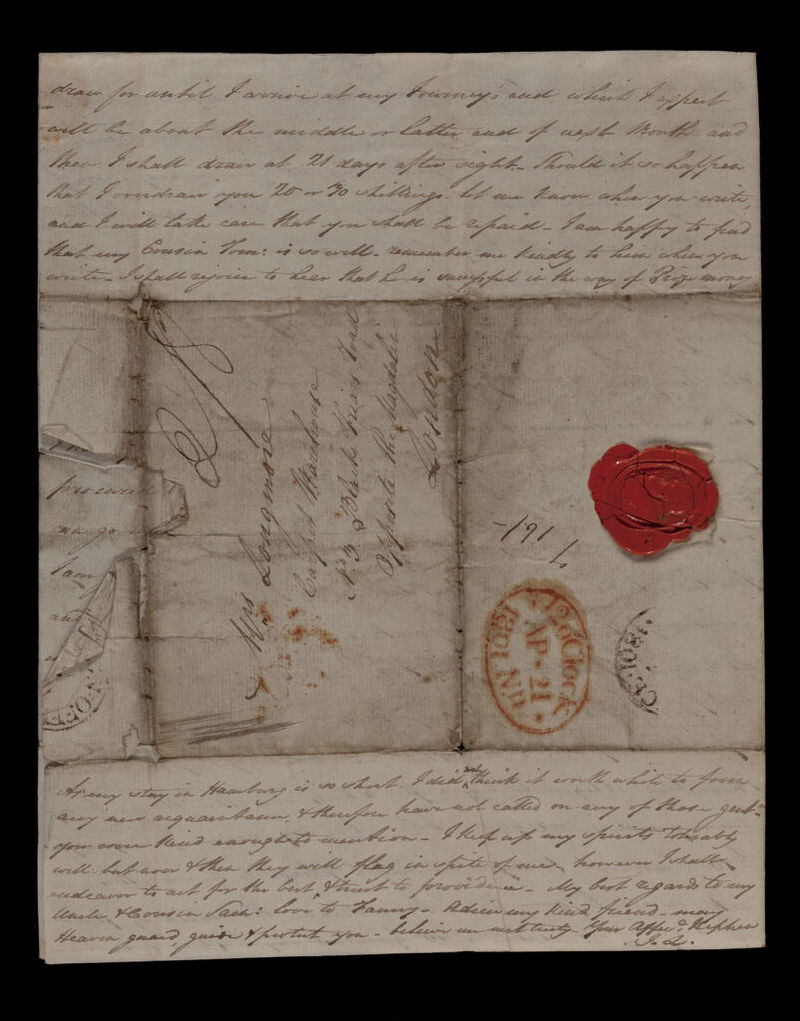 draw for until I arrive at my Journey's end which I expect
will be about the middle or latter end of next Month and
then I shall draw at 21 days after sight - Should it so happen
that I overdraw you 20 or 30 shillings - let me know when you write,
and I will take care that you shall be repaid - I am happy to find
that my Cousin Tom: is so well - remember me kindly to him when you
write - I shall rejoice to hear that he is successful in the way of Prize money
Mrs Longmore
Carpet Warehouse
No 3 Black Friars Road
Opposite the
London
procured
can go
I am
and
-/91
12 o'Clock
AP. 21
1801 NN
1801
As my stay in Hamburg is so short - I did not think it worth while to form
any new acquaintance, & therefore have not called on any of those gentn
you were kind enough to mention - I keep up my spirits tolerably
well but now & then they will flag in spite of me, however I shall
endeavor to act for the best & trust to providence - My best regards to my
Uncle & Cousin Sam: love to Fanny - Adieu my kind friend - may
Heaven guard, guide & protect you - believe me most truly Your Affec. Nephew
J. L.